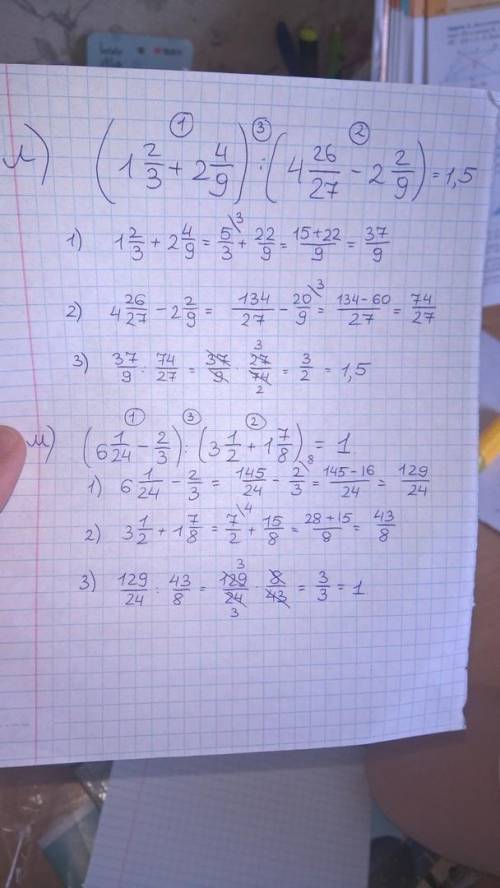 ① ③ ②
л) (1 2/3 + 2 4/9) : (4 26/27 - 2 2/9) = 1,5
1) 1 2/3 + 2 4/9 = 5/3 \3 + 22/9 = 15+22/9 = 37/9
2) 4 26/27 - 2 2/9 = 134/27 - 20/9 \3 = 134-60/27 = 74/27
3) 37/9 : 74/27 = 37/9 · 27/74 3 2 = 3/2 = 1,5
① ③ ②
м) (6 1/24 - 2/3) : (3 1/2 + 1 7/8) = 1
1) 6 1/24 - 2/3 = 145/24 - 2/3 \8 = 145-16/24 = 129/24
2) 3 1/2 + 1 7/8 = 7/2 \4 + 15/8 = 28+15/8 = 43/8
3) 129/24 : 43/8 = 129/24 · 8/43 3 3 = 3/3 = 1